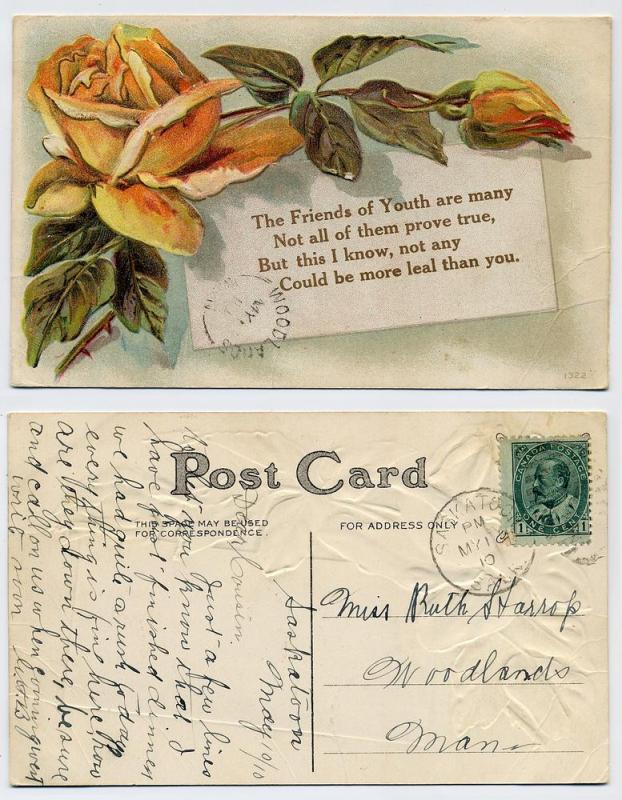 The Friends of Youth are many
Not all of them prove true,
But this I know, not any
Could be more leal than you.
WOODLANDS
MY
1322
Post Card
THIS SPACE MAY BE USED
FOR CORRESPONDENCE.
FOR ADDRESS ONLY
CANADA POSTAGE
1 ONE CENT 1
SASKATOON
PM
MY 1
10
Miss Ruth Harrop
Woodlands
Man
Saskatoon
May 10/10
Dear Cousin
Just a few lines
to let you know that I
have just finished dinner
we had quite a rush today
everything is fine here, how
are they down there, be sure
and call on us when coming west
write soon